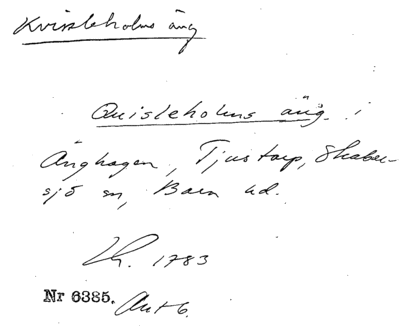 Kvissleholms äng
Quisleholms äng i
Änghagen, Tjustorp, Skaber-
sjö sn, Bara hd.
1783
Nr 6385.